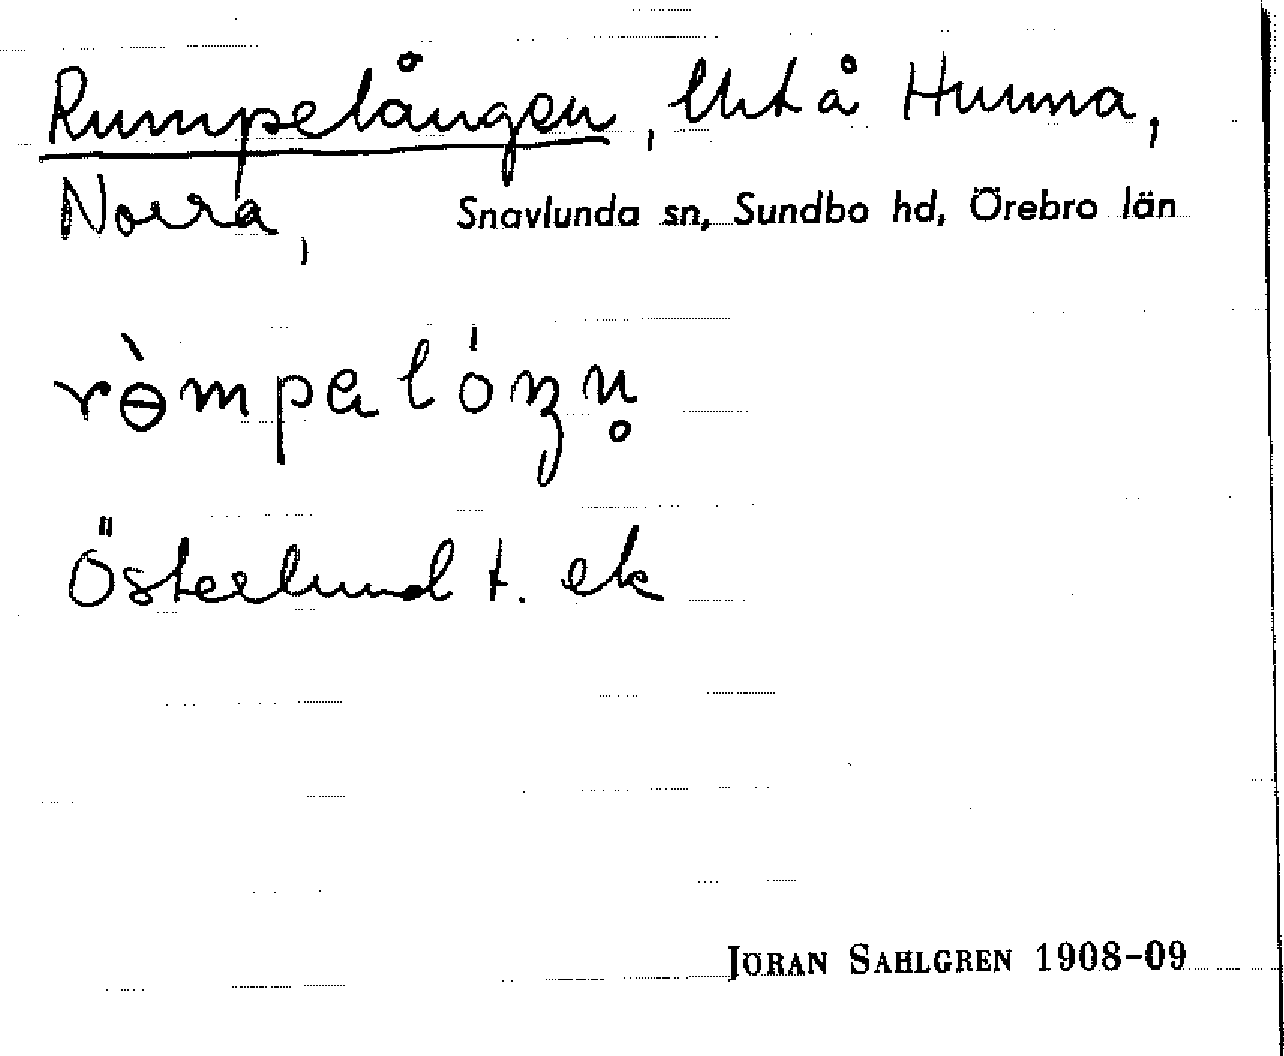 Rumpelången, Utå Humma,
Norra, Snavlunda sn, Sundbo hd, Örebro län
rɵ̀mpalóŋn̥
Österlund t. ek
JÖRAN SAHLGREN 1908–09